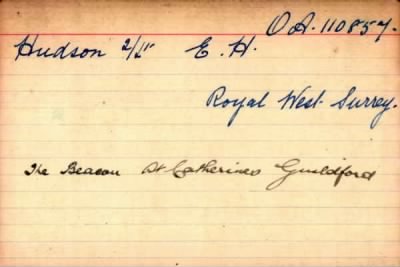 OA. 110857.
Hudson 2/Lt E. H.
Royal West Surrey.
The Beacon St Catherines Guildford